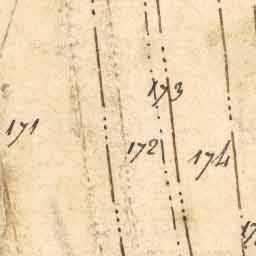 173
171
172
174